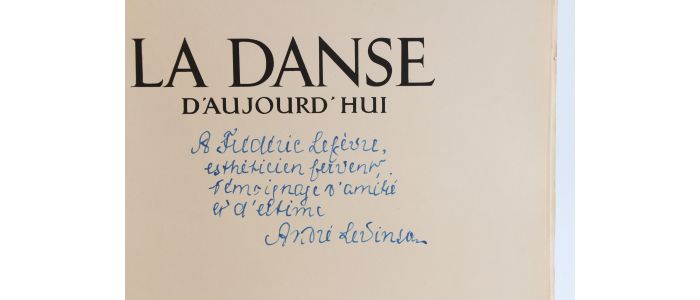 LA DANSE
D'AUJOURD'HUI
A Frédéric Lefèvre,
esthéticien fervent,
témoignage d'amitié
et d'estime
André Levinson